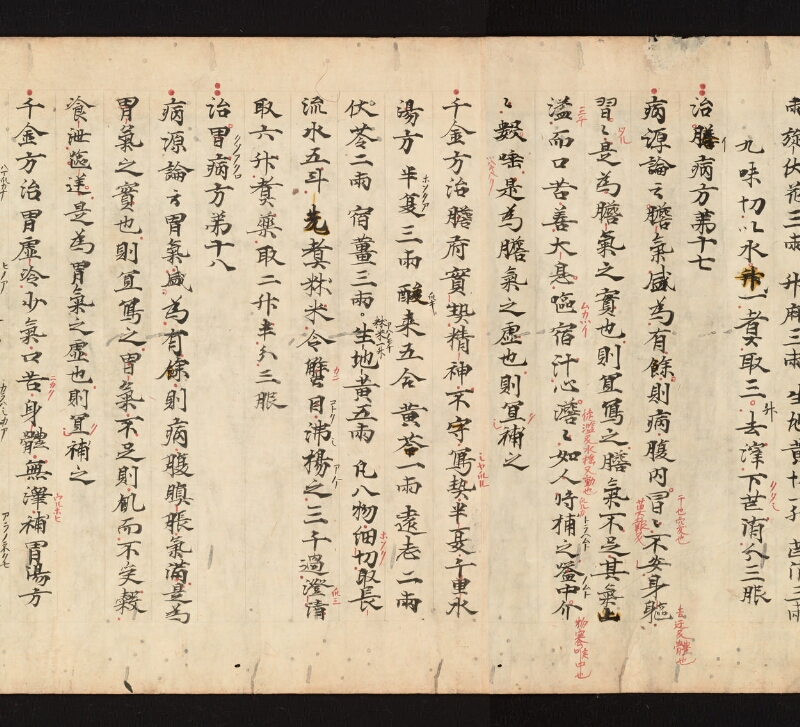 兩旋伏花三兩升麻三兩生地黄十一
九味切以水一煮取三升去滓下芒消分三服
治膽病方第十七
病源論云膽氣盛為有餘則病腹内冒〻不安身軀
習〻是為膽氣之實也則宜寫之膽氣不足其氣上
溢而口苦善大息嘔宿汁心澹〻如人時捕之嗌中介
〻數唾是為膽氣之虛也則宜補之
千金方治膽府實熱精神不守寫熱半夏千里水
湯方 半夏三兩 酸棗五合 黄芩一兩 遠志二兩
伏苓二兩 宿薑三兩 生地黄五兩 凡八物細切取長
流水五斗先煮秫米令蟹目沸揚之三千過澄清
取六升煮藥取二升半分三服
治胃病方第十八
病源論云胃氣盛為有餘則病腹瞋脹氣滿是為
胃氣之實也則宜寫之胃氣不足則飢而不受穀
飡泄嘔逆是為胃氣之虛也則宜補之
千金方治胃虛冷少氣口苦身體無澤補胃湯方